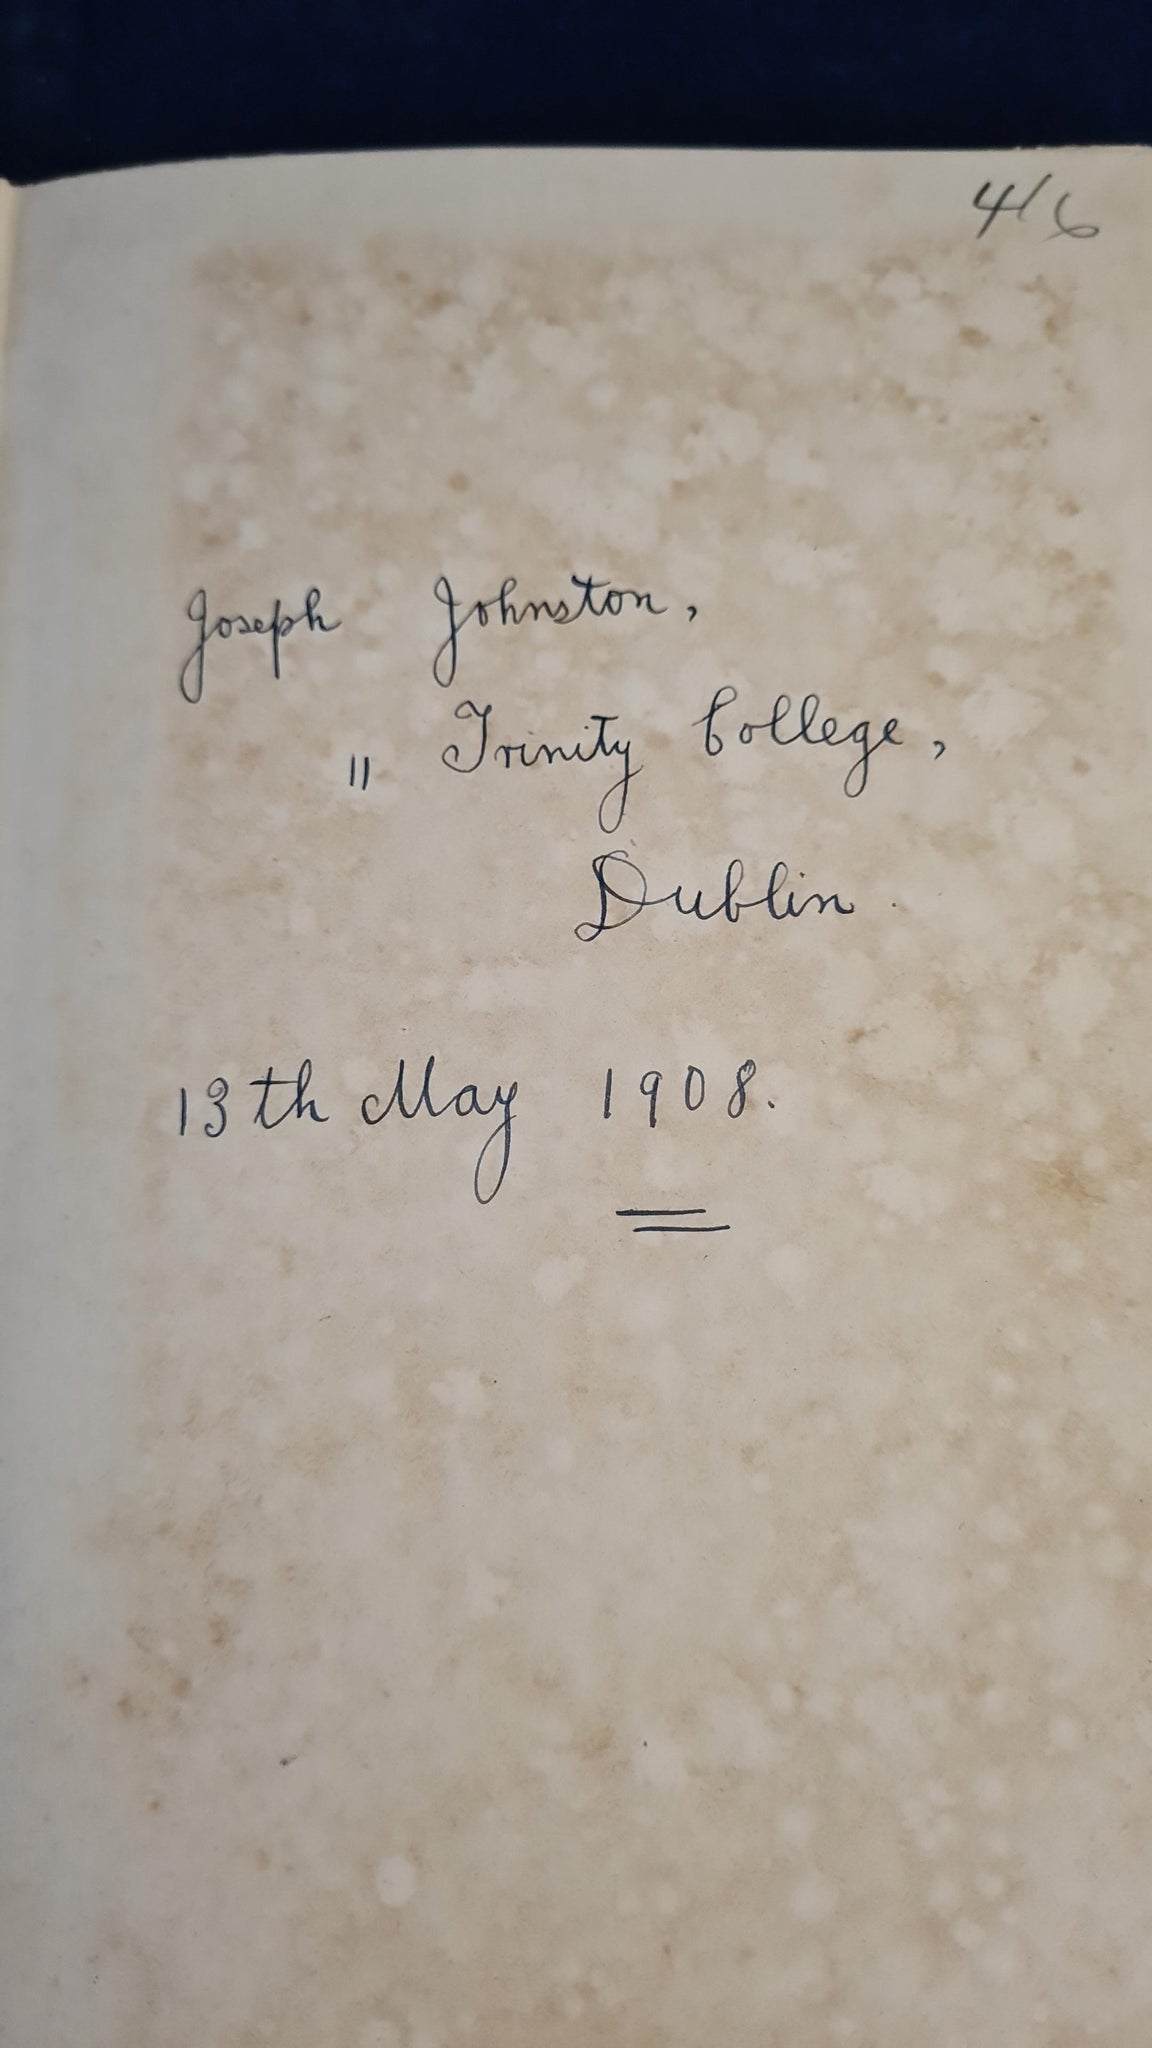 4/6
Joseph Johnston,
" Trinity College,
Dublin.
13th May 1908.